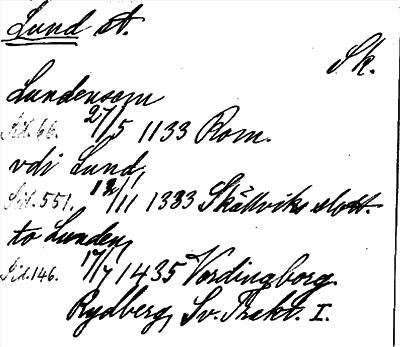 Lund st.
Sk.
Lundensem
Sid. 66. 27/5 1133 Rom.
vdi Lund,
Sid. 551. 12/11 1383 Skällviks slott.
to Lunden,
Sid. 146. 17/7 1435 Vordingborg.
Rydberg, Sv. Trakt. I.